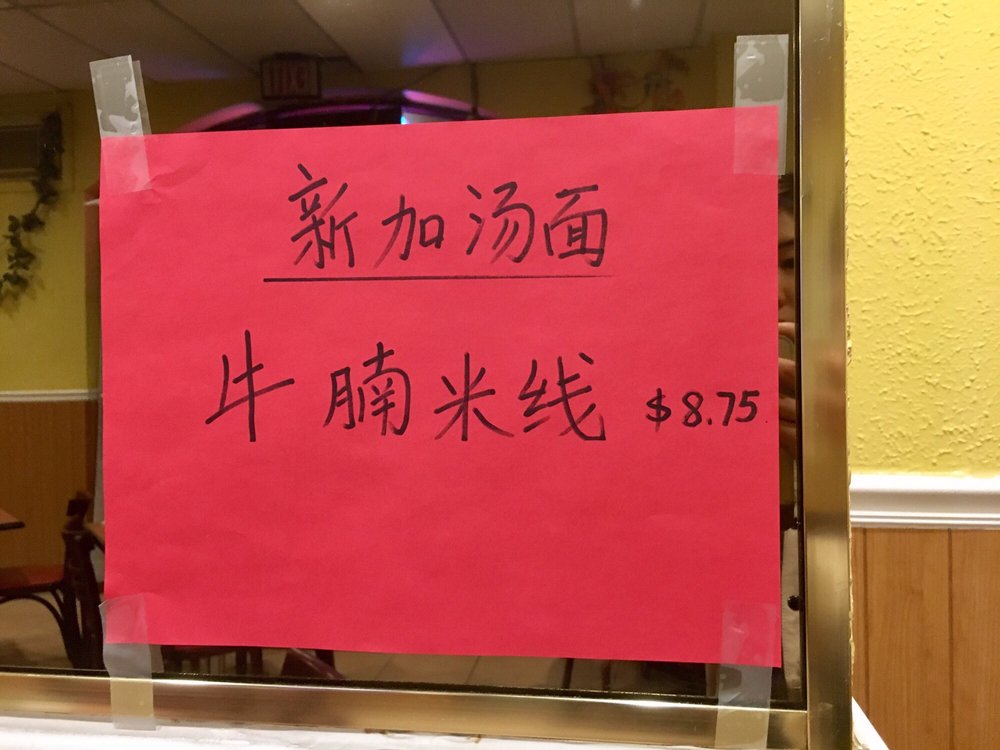 新加汤面
牛腩米线 $8.75